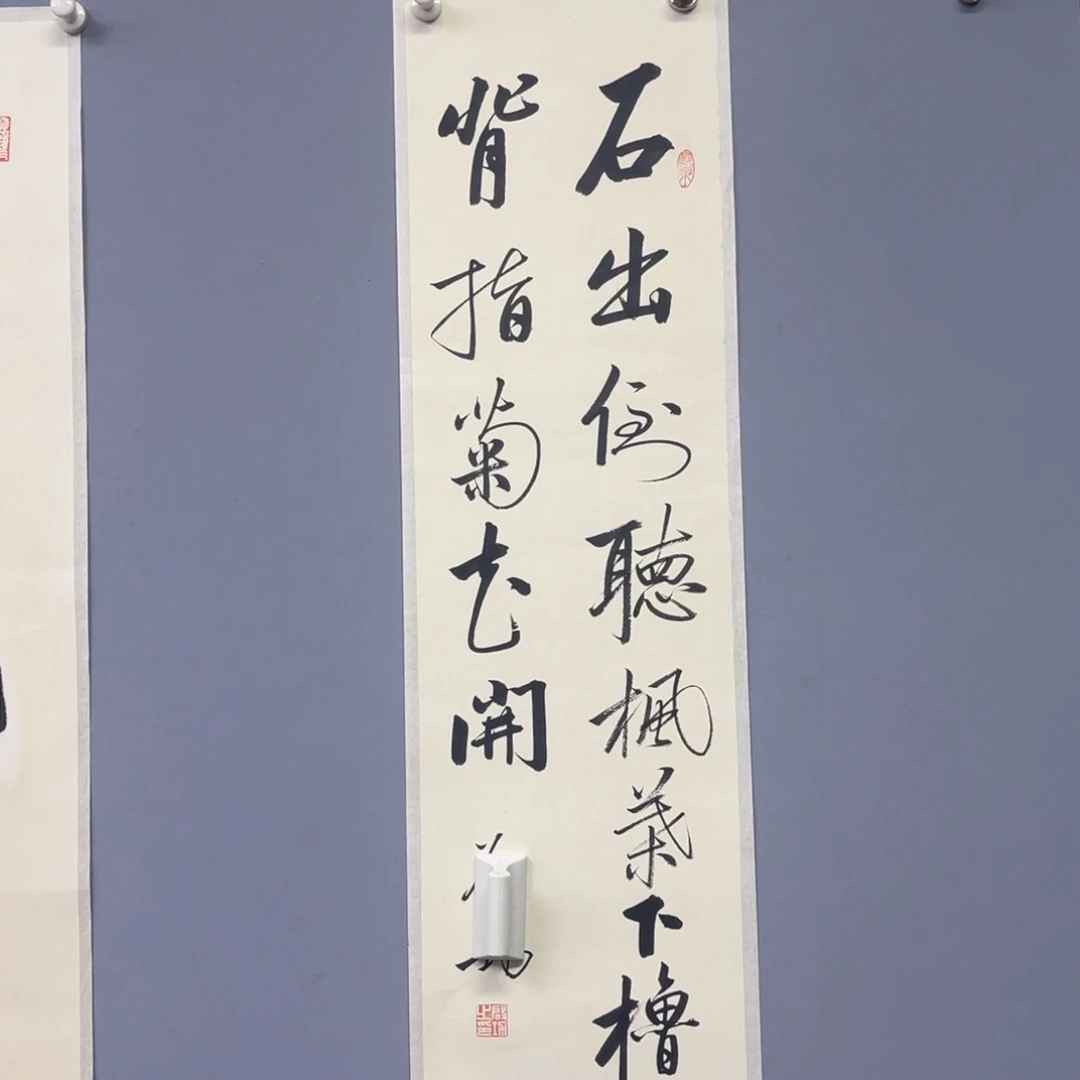 石出倒聽楓葉下櫓
背指菊花開